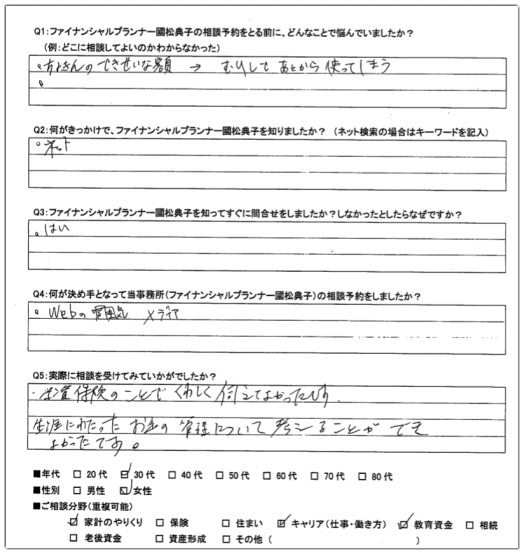 Q1:ファイナンシャルプランナー國松典子の相談予約をとる前に、どんなことで悩んでいましたか?
(例:どこに相談してよいのかわからなかった)
→ むりして あとから 使ってしまう
Q2:何がきっかけで、ファイナンシャルプランナー國松典子を知りましたか? (ネット検索の場合はキーワードを記入)
。ネット
Q3:ファイナンシャルプランナー國松典子を知ってすぐに問合せをしましたか?しなかったとしたらなぜですか?
。はい
Q4:何が決め手となって当事務所(ファイナンシャルプランナー國松典子)の相談予約をしましたか?
。Webの雰囲気 メディア
Q5:実際に相談を受けてみていかがでしたか?
保険のことで くわしく 伺えてよかったです
生涯にわたった お金の 管理について 考えることが でき
よかったです。
■年代 □20代 ☑30代 □40代 □50代 □60代 □70代 □80代
■性別 □男性 ☑女性
■ご相談分野(重複可能)
☑家計のやりくり □保険 □住まい ☑キャリア(仕事・働き方) ☑教育資金 □相続
□老後資金 □資産形成 □その他( )